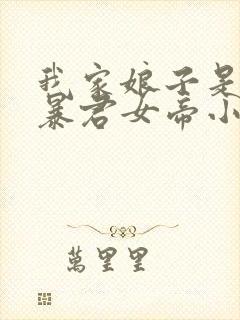 我家娘子是
暴君女帝小
萬里里